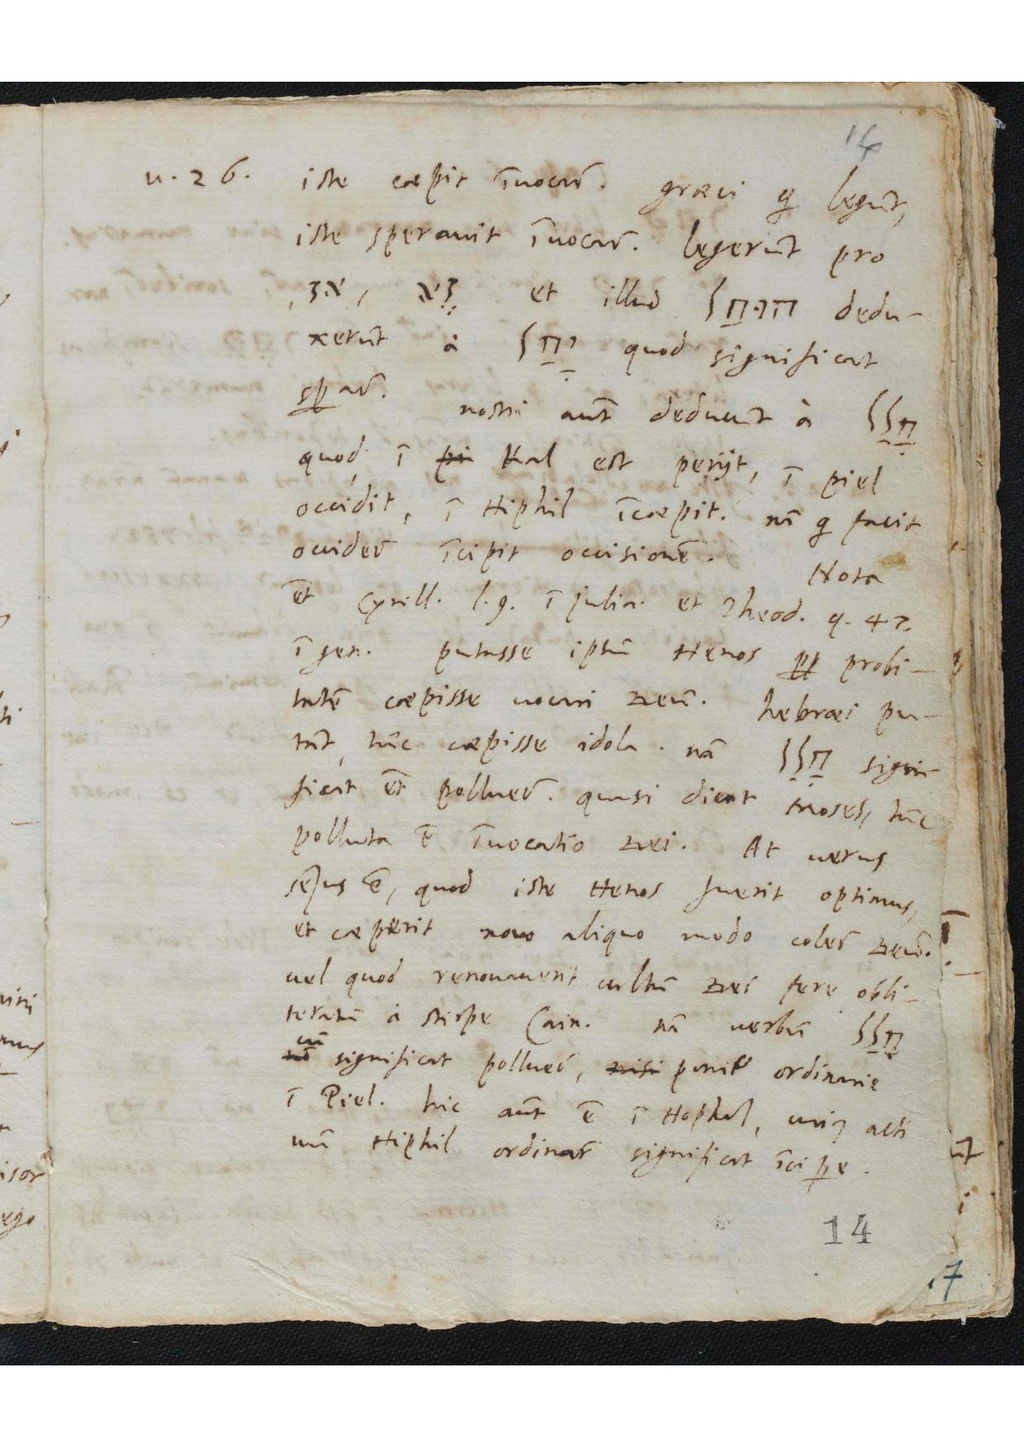 14
u. 26. iste cœpit īuocar̃. græci q̃ legūt,
iste sperauit īuocar̃. legerūt pro
אז, זה et illud הוחל dedu-
xerūt à יחל quod significat
sꝑar̃. nostri aut̃ deducūt à חלל
quod ī pi Kal est perijt, ī piel
occidit, ī Hiphil īcœpit. nā q̃ facit
occider̃ īcipit occisionē. Nota
et̃ Cyrill. l. 9. ī Julia. et Theod. q. 47.
ī gen. putasse ipsū Henos ꝓꝑ probi-
tatē cœpisse uocari Deū. hebræi pu-
tāt, tūc cœpisse idola. nā חלל signi-
ficat et̃ polluer̃. quasi dicat Moses, tūc
polluta ē īuocatio Dei. At uerus
sẽsus ē, quod iste Henos fuerit optimus,
et cœperit nouo aliquo modo coler̃ Deū.
uel quod renouauerit cultū Dei fere obli-
teratū à stirpe Cain. nā uerbū חלל
cū
nō significat polluer̃, nisi ponit̃ ordinarie
ī Piel. hic aut̃ ē ī Hophal, cuiꝯ acti
uū Hiphil ordinar̃ significat īciꝑe.
14
17